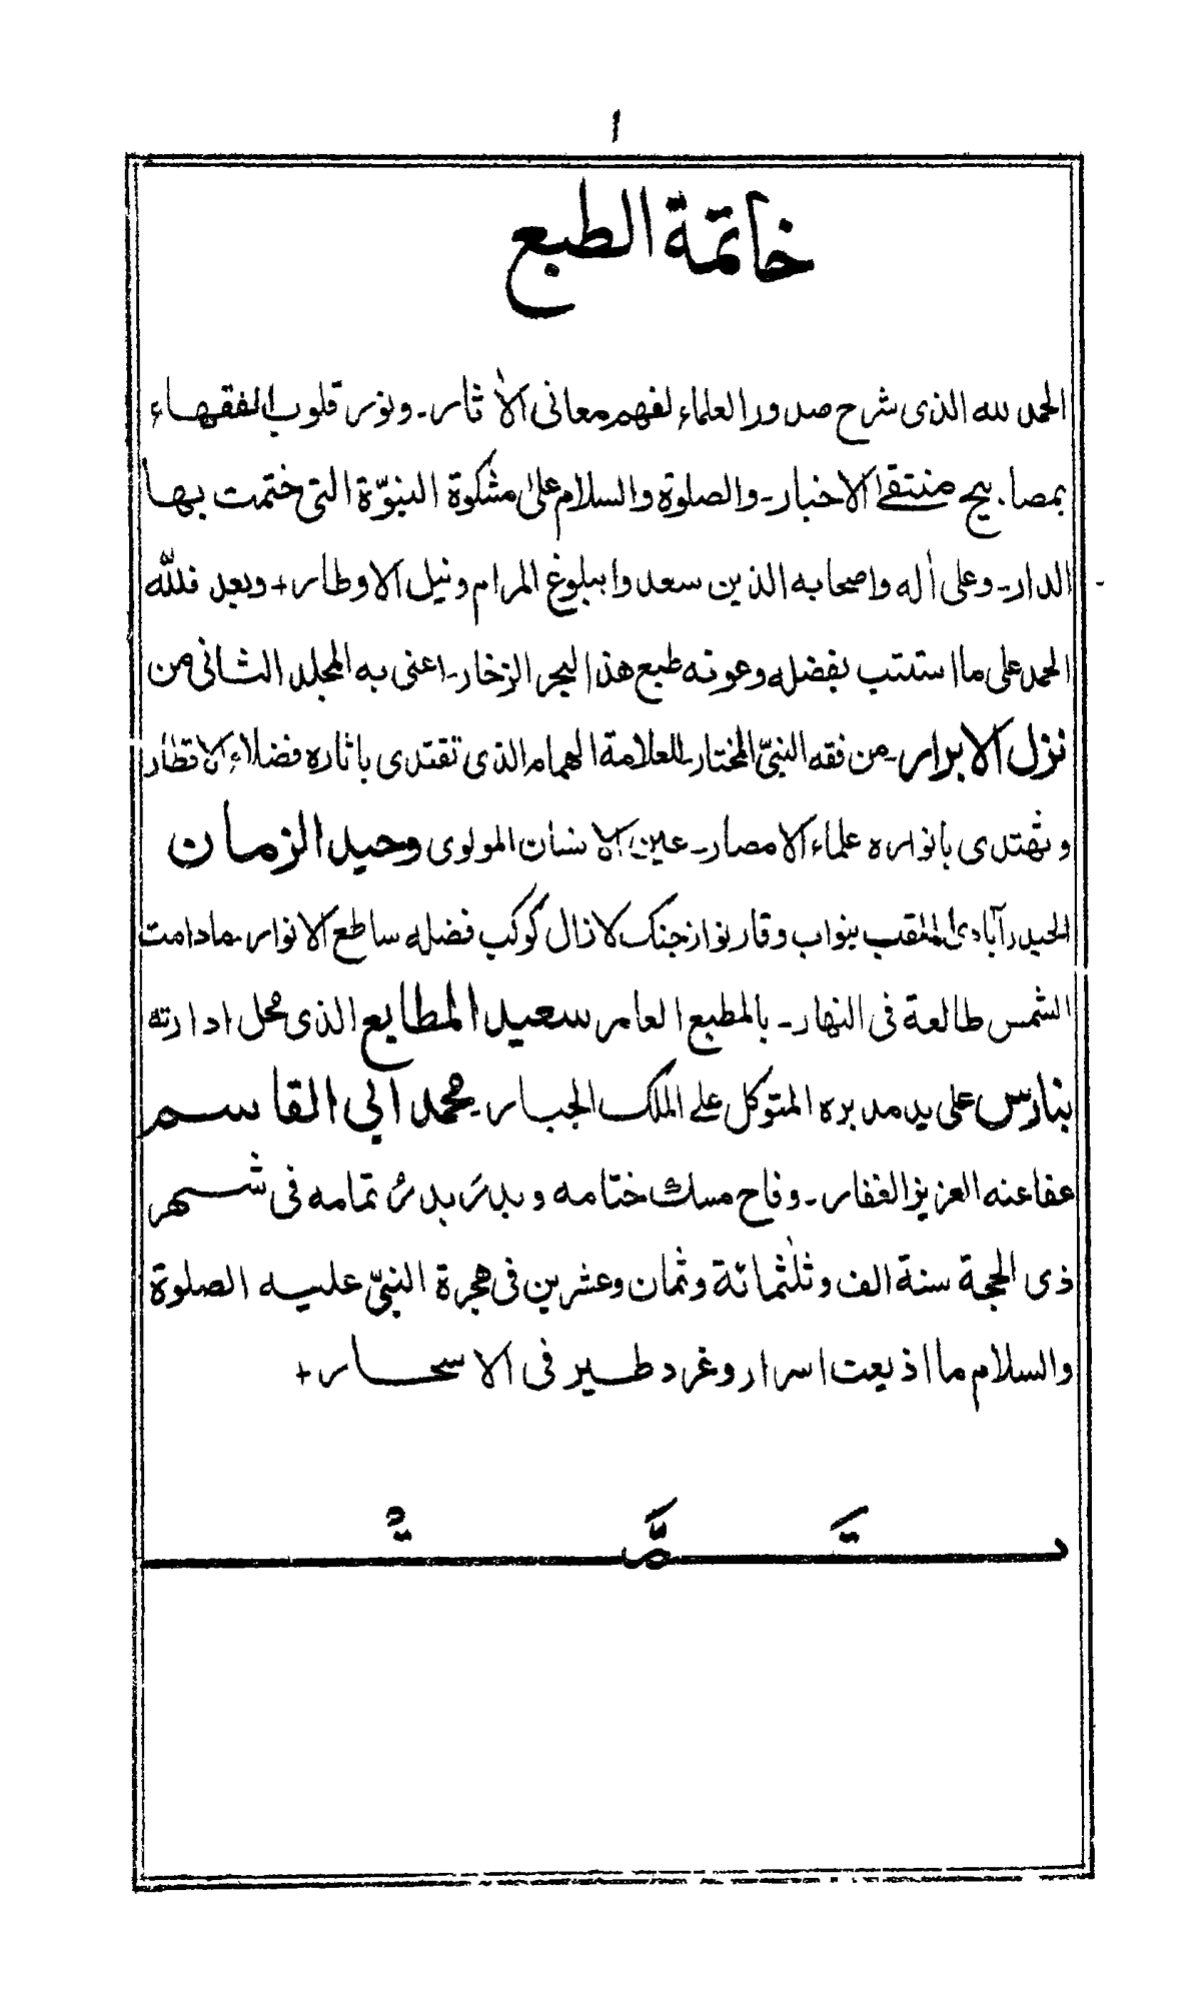 ١
خاتمة الطبع
الحمد لله الذى شرح صدور العلماء لفهم معانى الأثار ـ ونور قلوب الفقهاء
بمصابيح منتقى الاخبار ـ والصلوة والسلام على مشكوة النبوّة التى ختمت بها
الدار ـ وعلى أله واصحابه الذين سعدوا ببلوغ المرام ونيل الاوطار + وبعد فلله
الحمد على ما استتب بفضله وعونه طبع هذا البحر الزخار ـ اعنى به المجلد الثانى من
نزل الابرار ـ من فقه النبىّ المختار ـ للعلامة الهمام الذى تقتدى باثاره فضلاء الاقطار
وتهتدى بانواره علماء الامصار ـ عين الانسان المولوى وحيد الزمان
الحيدرآبادى الملقب بنواب وقار نواز جنك لا زال كوكب فضله ساطع الانوار ـ مادامت
الشمس طالعة فى النهار ـ بالمطبع العامر سعيد المطابع الذى محل ادارته
بنارس على يد مدبره المتوكل على الملك الجبار ـ محمد ابي القاسم
عفا عنه العزيز الغفار ـ وفاح مسك ختامه وبدرَ بدرُ تمامه فى شهر
ذى الحجة سنة الف وثلثمائة وثمان وعشرين فى هجرة النبىّ عليه الصلوة
والسلام ما اذيعت اسرار وغرد طير فى الاسحار +
تَمَّتْ